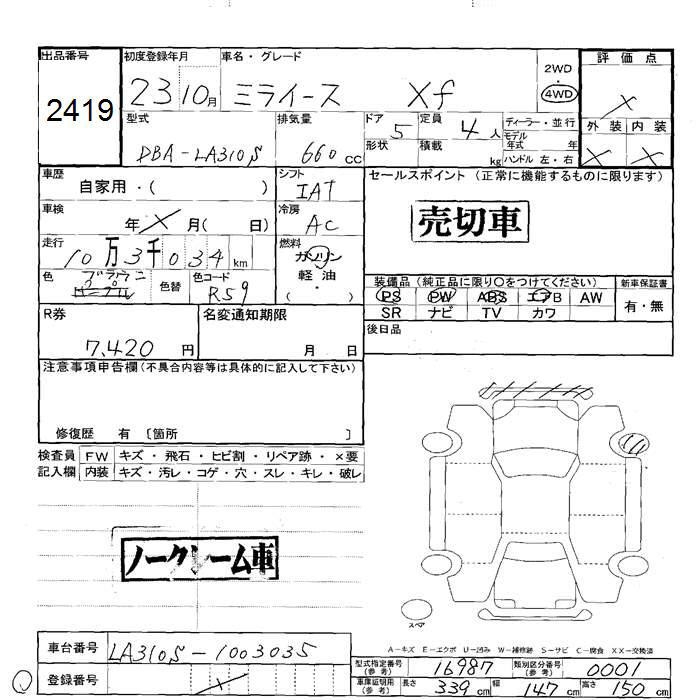 出品番号
2419
初度登録年月 車名・グレード
23 10月 ミライース Xf
2WD
4WD
評価点
×
外装 内装
× ×
型式
DBA-LA310S
排気量
660cc
ドア
5
定員
4人
形状 積載 kg
ディーラー・並行
モデル年式 年
ハンドル 左・右
車歴
自家用・( )
シフト
IAT
セールスポイント (正常に機能するものに限ります)
売切車
車検
年×月( 日)
冷房
AC
走行
10万3千034km
燃料
ガソリン
軽油
・( )
色
ブラウン
色替
色コード
R59
装備品 (純正品に限り○をつけてください)
PS PW ABS エアB AW
SR ナビ TV カワ
新車保証書
有・無
後日品
R券
7,420円
名変通知期限
月 日
注意事項申告欄(不具合内容等は具体的に記入して下さい)
修復歴 有 〔箇所 〕
検査員 FW キズ・飛石・ヒビ割・リペア跡・×要
記入欄 内装 キズ・汚レ・コゲ・穴・スレ・キレ・破レ
ノークレーム車
スペア
A-キズ E-エクボ U-凹み W-補修跡 S-サビ C-腐食 XX-交換済
車台番号 LA310S-1003035
登録番号 ×
型式指定番号(参考) 16987 類別区分番号(参考) 0001
車庫証明用(参考) 長さ 339cm 幅 147cm 高さ 150cm